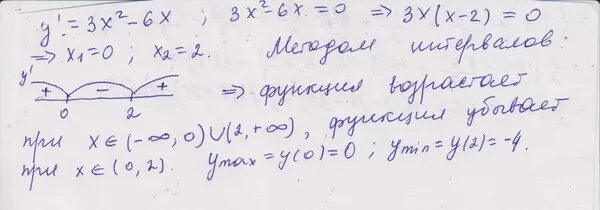 y' = 3x² - 6x ; 3x² - 6x = 0 ⇒ 3x(x-2) = 0
⇒ x₁ = 0 ; x₂ = 2. Методом интервалов:
y' + - + ⇒ функция возрастает
0 2
при x ∈ (-∞, 0) ∪ (2, +∞), функция убывает
при x ∈ (0, 2). ymax = y(0) = 0 ; ymin = y(2) = -4.